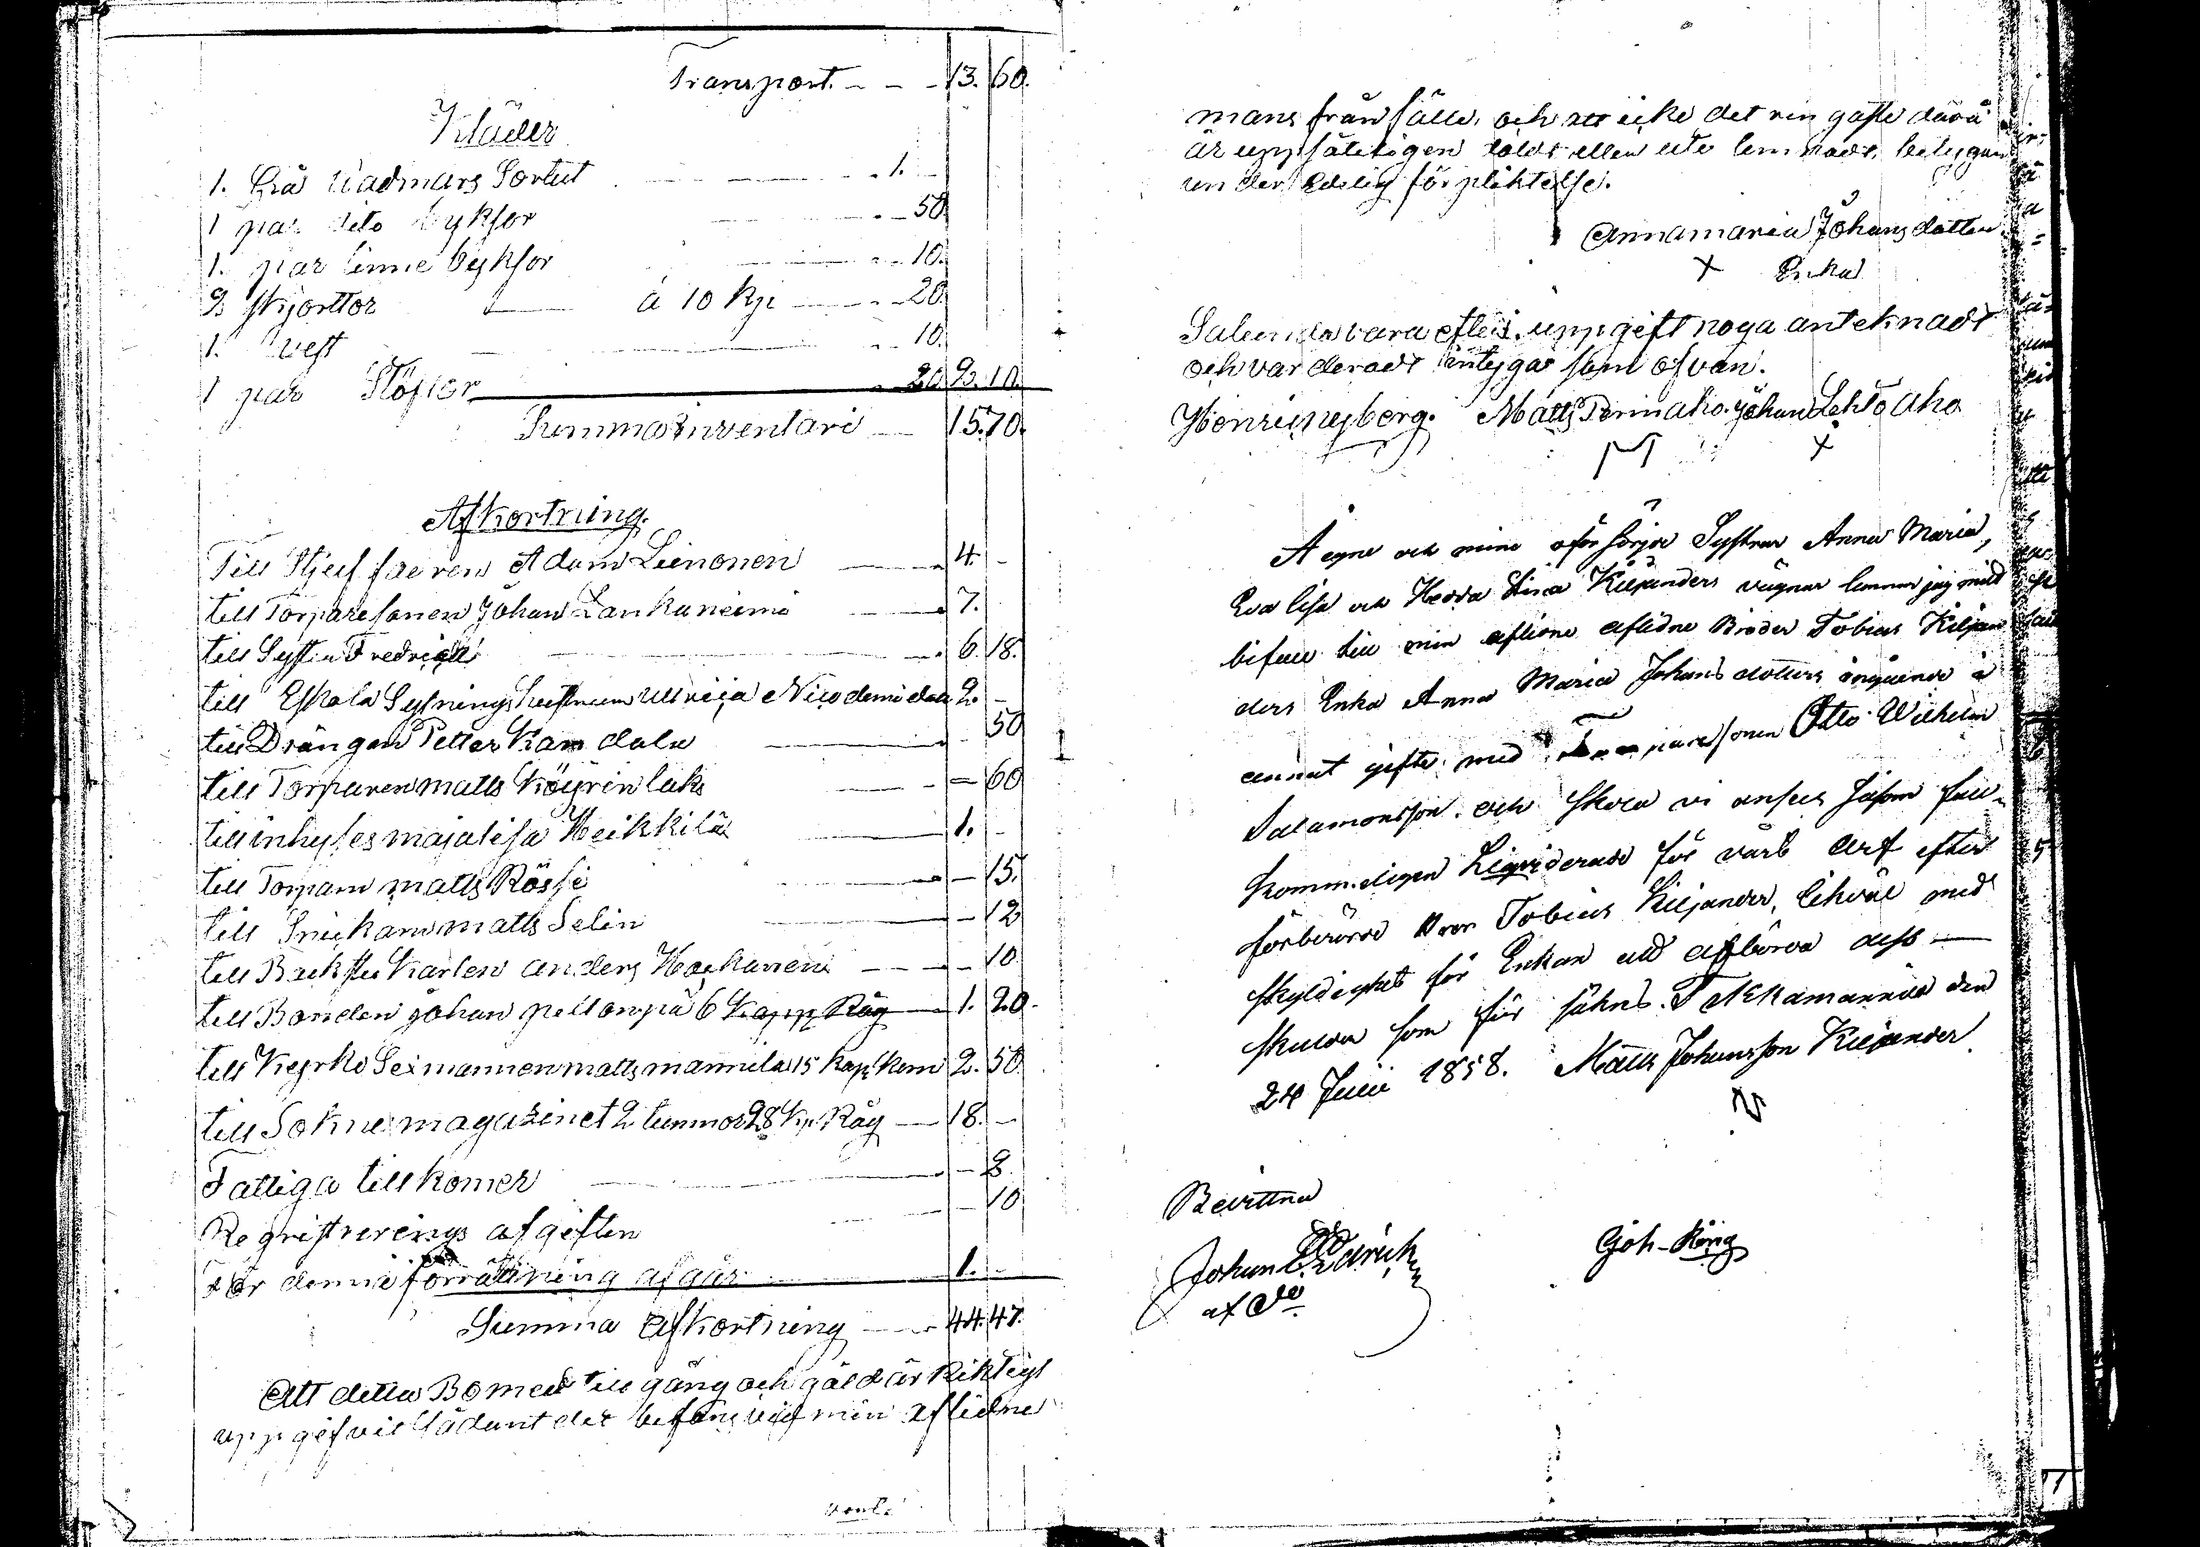 Transport. - - - 13. 60.
Kläder
1. Grå Wadmars Sortut - 1. -
1 par dito byksor - 50
1. par linne byksor - 10.
2 skjorttor á 10 kpi - 20.
1. vest - 10.
1 par Stöflor 20 2. 10.
Summa inventari 15. 70.
Afkortning.
Till Stjuf faeren Adam Leinonen 4. -
till Torparesonen Johan Lankaneimi 7.
till Systin Fredrich 6. 18.
till Eskola Sytnings 2. -
till Drängen Petter Kan dala 50
till Torparen matts Köyrinlaks - 60
till inhyses majalisa Heikkilä 1. -
till Torparn matts Rössi - 15.
till Snickarn matts Selin - 12
till Backstu karlen anders Hackarien - 10
till Bonden johan pellonpä 6 Kapp Råg 1. 20.
till Kyrko Sexmannen matts mannila 15 kap korn 2. 50.
till Sokne magazinet 2 tunnor 28 kp. Råg 18. -
Fattiga tillkomer - 2.
Regristrerings afgiften - 10
För denna förrättning afgår 1. -
Summa afkortning 44. 47.
Att detta Bomed tillgång och gäld är Riktigt
uppgifvit sådant det befans vid min aflidne
vent.
mans frånfälle, och att icke det ringaste därå
är uppsåteligen doldt eller ute lemnadt, betygar
under Edelig förpliktelse.
Annamaria Johansdotter
X Enka
Salunda vara efter uppgift noga anteknadt
och varderadt intygas som ofvan.
Henric nyberg. Matts Perinaho. Johan Lehto Aho
X
Å egne och mine oförsörjde Systrar Anna Maria,
Eva lisa och Hedda Stina Kiljanders vägnar lemnar jag mitt
bifall till min aflidne aflidne Broder Tobias Kiljan
ders Enka Anna Maria Johansdotters ingående i
annat gifte med Torparesonen Otto Wilhelm
Salamonsson. och skola vi anses såsom full-
kommeligen Liqviderade för vårt arf efter
förberörde Bror Tobias Kiljander, likväl med
skyldighet för Enkan att afbörda dess
skulder som sig sakna. T
24 Julii 1858. Matts Johansson Kiljander
Bevittna
Johan
af
Joh. Röring